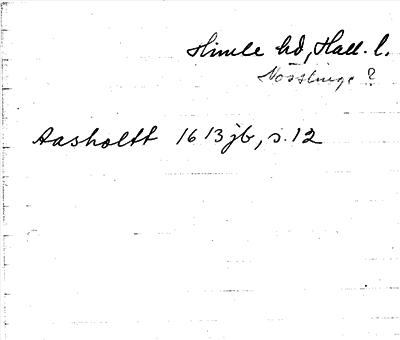 Himle hd, Hall. l.
Nösslinge ?
Aasholtt 1613 jb, s. 12